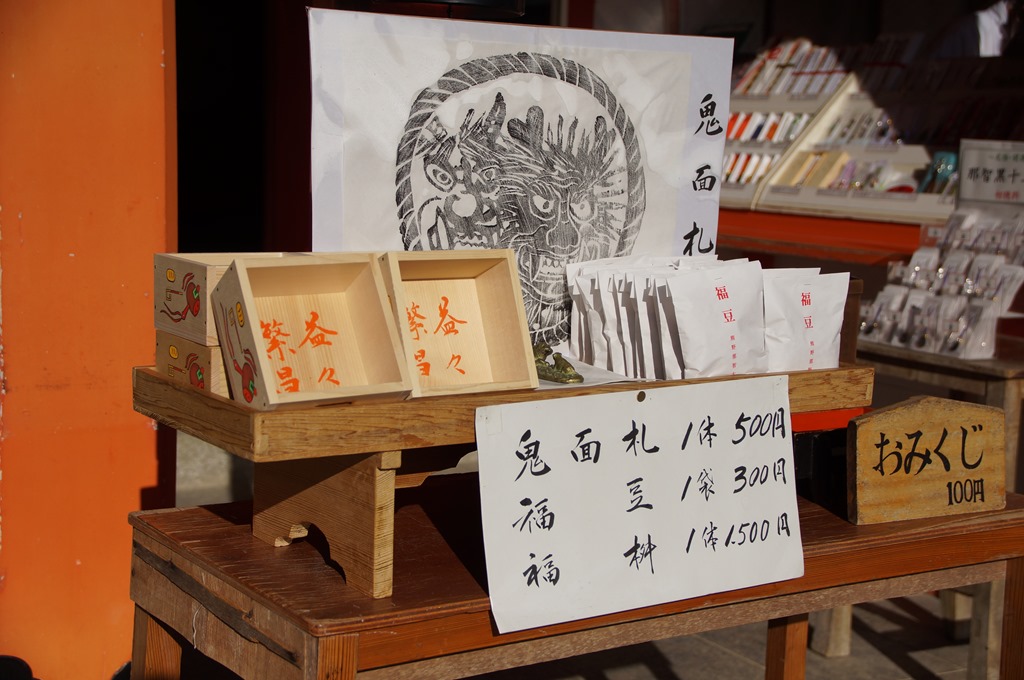 鬼面札
益々
繁昌
益々
繁昌
福豆
福豆
鬼面札 1体 500円
福豆 1袋 300円
福枡 1体 1.500円
おみくじ
100円
那智黒